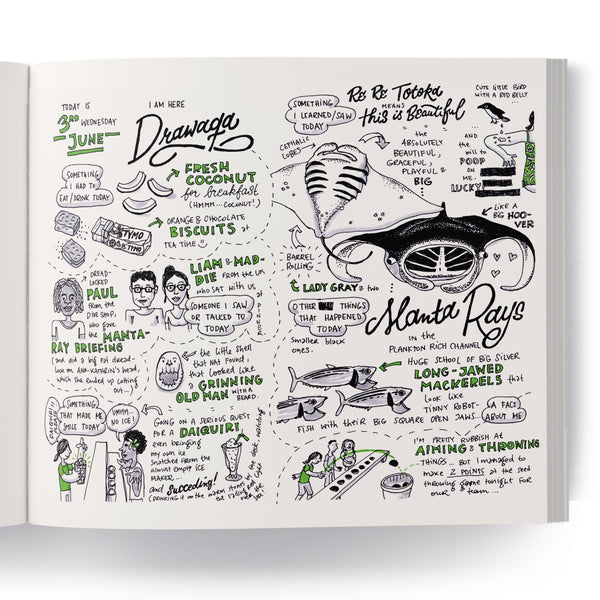 TODAY IS
3RD WEDNESDAY
JUNE
I AM HERE
Drawaqa
SOMETHING
I HAD TO
EAT/DRINK TODAY
FRESH
COCONUT
for breakfast
(HMMM...COCONUT!)
ORANGE & CHOCOLATE
BISCUITS at
TEA TIME
TYMO
TYMO
DREAD-
LOCKED
PAUL
FROM THE
DIVE SHOP,
who gave
the MANTA-
RAY BRIEFING
LIAM & MAD-
DIE FROM THE UK
who SAT WITH US
SOMEONE I SAW
OR TALKED TO
TODAY
the little shell
that NAT FOUND,
that looked like
a GRINNING
OLD MAN WITH A
BEARD.
SOMETHING
THAT MADE ME
SMILE TODAY
UMMM...
NO ICE!
DAIQUIRI?
GOING ON A SERIOUS QUEST
FOR A DAIQUIRI,
even bringing
my own ice
SNATCHED FROM THE
almost EMPTY ICE
MAKER...
and succeeding!
SOMETHING
I LEARNED/SAW
TODAY
Rē Rē Totoka
MEANS
this is Beautiful
CUTE LITTLE BIRD
WITH A RED BELLY
CEPHALIC
LOBES
= the
ABSOLUTELY
BEAUTIFUL,
GRACEFUL,
PLAYFUL &
BIG
AND
the
will to
POOP
ON
ME.
LUCKY
LIKE A
BIG HOO-
VER
BARREL
ROLLING
LADY GRAY & two
OTHER THINGS
THAT HAPPENED
TODAY
smaller black
ones.
Manta Rays
in the
PLANKTON RICH CHANNEL
HUGE SCHOOL OF BIG SILVER
LONG-JAWED
MACKERELS that
look like
TINNY ROBOT-
FISH with their BIG SQUARE OPEN JAWS.
A FACT
ABOUT ME
I'M PRETTY RUBBISH AT
AIMING & THROWING
THINGS... BUT I MANAGED to
make 2 POINTS at the seed
throwing game tonight FOR
our team...